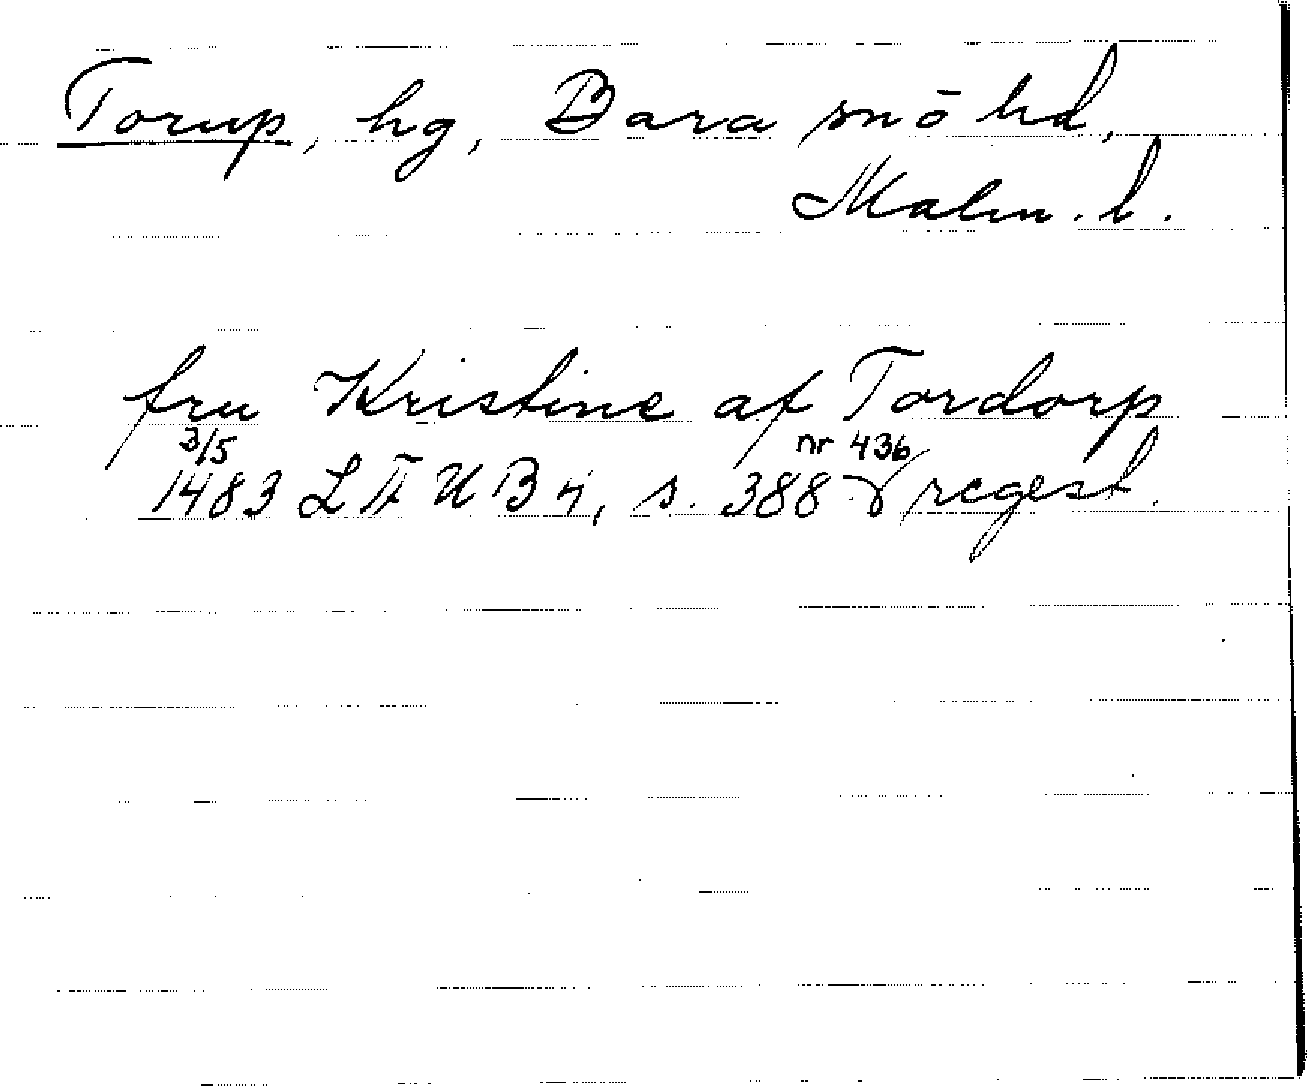 Torup, hg, Bara snö hd,
Malm. l.
fru Kristine af Tordorp
3/5 nr 436
1483 LÆUB 4, s. 388 regest.